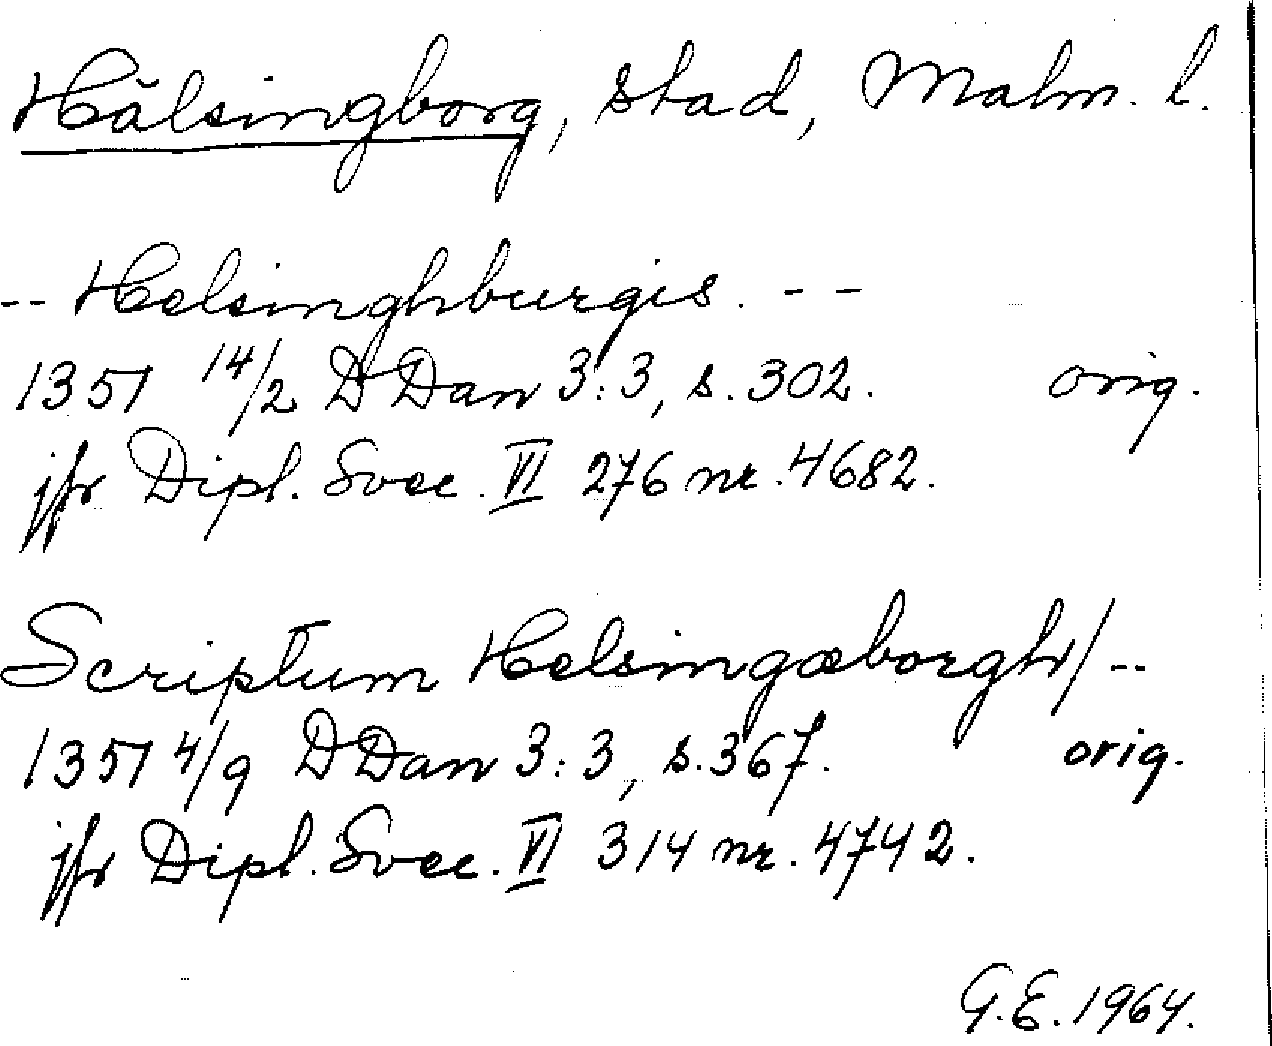 Hälsingborg, stad, Malm. l.
-- Helsinghburgis. --
1351 14/2 DDan 3:3, s. 302. orig.
jfr Dipl. Svec. VI 276 nr. 4682.
Scriptum Helsingæborgh/--
1351 4/9 DDan 3:3, s. 367. orig.
jfr Dipl. Svec. VI 314 nr. 4742.
G.E. 1964.